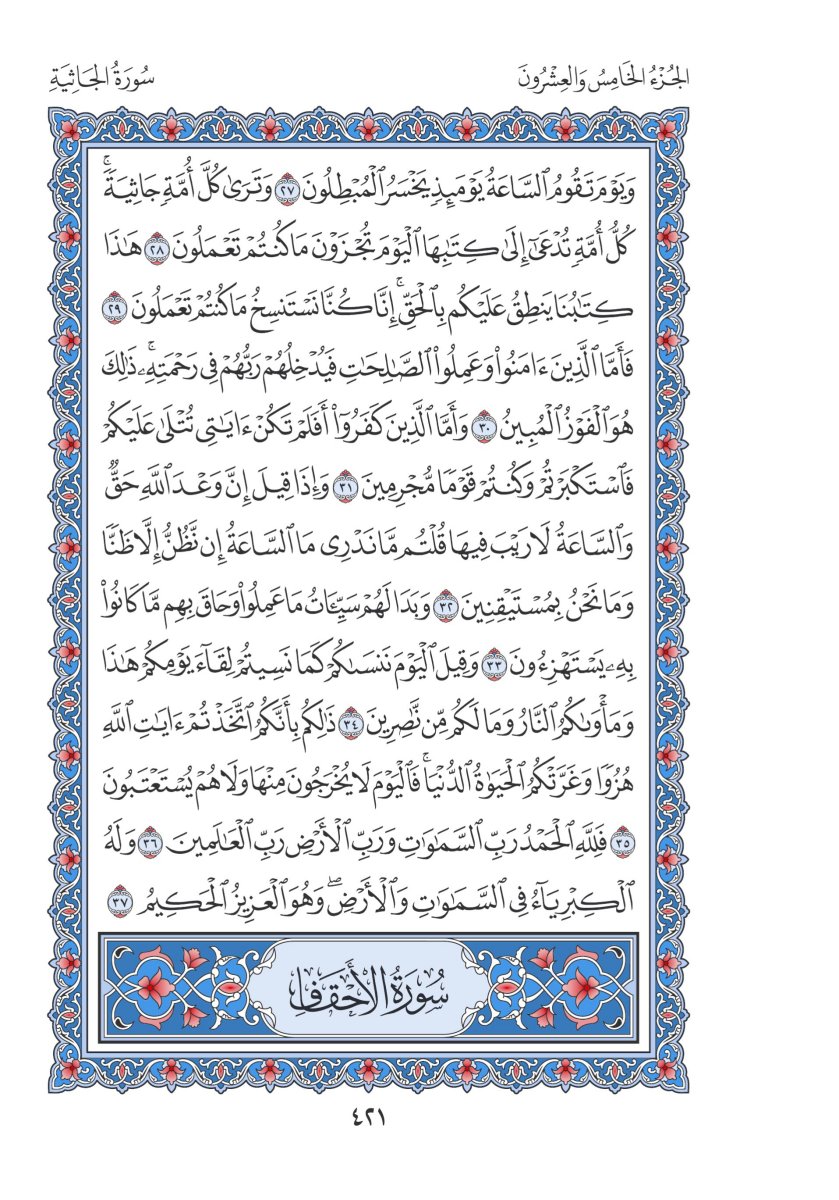 الجُزْءُ الخَامِسُ وَالعِشْرُونَ
سُورَةُ الجَاثِيَةِ
وَيَوْمَ تَقُومُ ٱلسَّاعَةُ يَوْمَئِذٍ يَخْسَرُ ٱلْمُبْطِلُونَ ٢٧ وَتَرَىٰ كُلَّ أُمَّةٍ جَاثِيَةً ۚ
كُلُّ أُمَّةٍ تُدْعَىٰٓ إِلَىٰ كِتَـٰبِهَا ٱلْيَوْمَ تُجْزَوْنَ مَا كُنتُمْ تَعْمَلُونَ ٢٨ هَـٰذَا
كِتَـٰبُنَا يَنطِقُ عَلَيْكُم بِٱلْحَقِّ ۚ إِنَّا كُنَّا نَسْتَنسِخُ مَا كُنتُمْ تَعْمَلُونَ ٢٩
فَأَمَّا ٱلَّذِينَ ءَامَنُوا۟ وَعَمِلُوا۟ ٱلصَّـٰلِحَـٰتِ فَيُدْخِلُهُمْ رَبُّهُمْ فِى رَحْمَتِهِۦ ۚ ذَٰلِكَ
هُوَ ٱلْفَوْزُ ٱلْمُبِينُ ٣٠ وَأَمَّا ٱلَّذِينَ كَفَرُوٓا۟ أَفَلَمْ تَكُنْ ءَايَـٰتِى تُتْلَىٰ عَلَيْكُمْ
فَٱسْتَكْبَرْتُمْ وَكُنتُمْ قَوْمًا مُّجْرِمِينَ ٣١ وَإِذَا قِيلَ إِنَّ وَعْدَ ٱللَّهِ حَقٌّ
وَٱلسَّاعَةُ لَا رَيْبَ فِيهَا قُلْتُم مَّا نَدْرِى مَا ٱلسَّاعَةُ إِن نَّظُنُّ إِلَّا ظَنًّا
وَمَا نَحْنُ بِمُسْتَيْقِنِينَ ٣٢ وَبَدَا لَهُمْ سَيِّـَٔاتُ مَا عَمِلُوا۟ وَحَاقَ بِهِم مَّا كَانُوا۟
بِهِۦ يَسْتَهْزِءُونَ ٣٣ وَقِيلَ ٱلْيَوْمَ نَنسَىٰكُمْ كَمَا نَسِيتُمْ لِقَآءَ يَوْمِكُمْ هَـٰذَا
وَمَأْوَىٰكُمُ ٱلنَّارُ وَمَا لَكُم مِّن نَّـٰصِرِينَ ٣٤ ذَٰلِكُم بِأَنَّكُمُ ٱتَّخَذْتُمْ ءَايَـٰتِ ٱللَّهِ
هُزُوًا وَغَرَّتْكُمُ ٱلْحَيَوٰةُ ٱلدُّنْيَا ۚ فَٱلْيَوْمَ لَا يُخْرَجُونَ مِنْهَا وَلَا هُمْ يُسْتَعْتَبُونَ
٣٥ فَلِلَّهِ ٱلْحَمْدُ رَبِّ ٱلسَّمَـٰوَٰتِ وَرَبِّ ٱلْأَرْضِ رَبِّ ٱلْعَـٰلَمِينَ ٣٦ وَلَهُ
ٱلْكِبْرِيَآءُ فِى ٱلسَّمَـٰوَٰتِ وَٱلْأَرْضِ ۖ وَهُوَ ٱلْعَزِيزُ ٱلْحَكِيمُ ٣٧
سُورَةُ الأَحْقَافِ
٤٢١